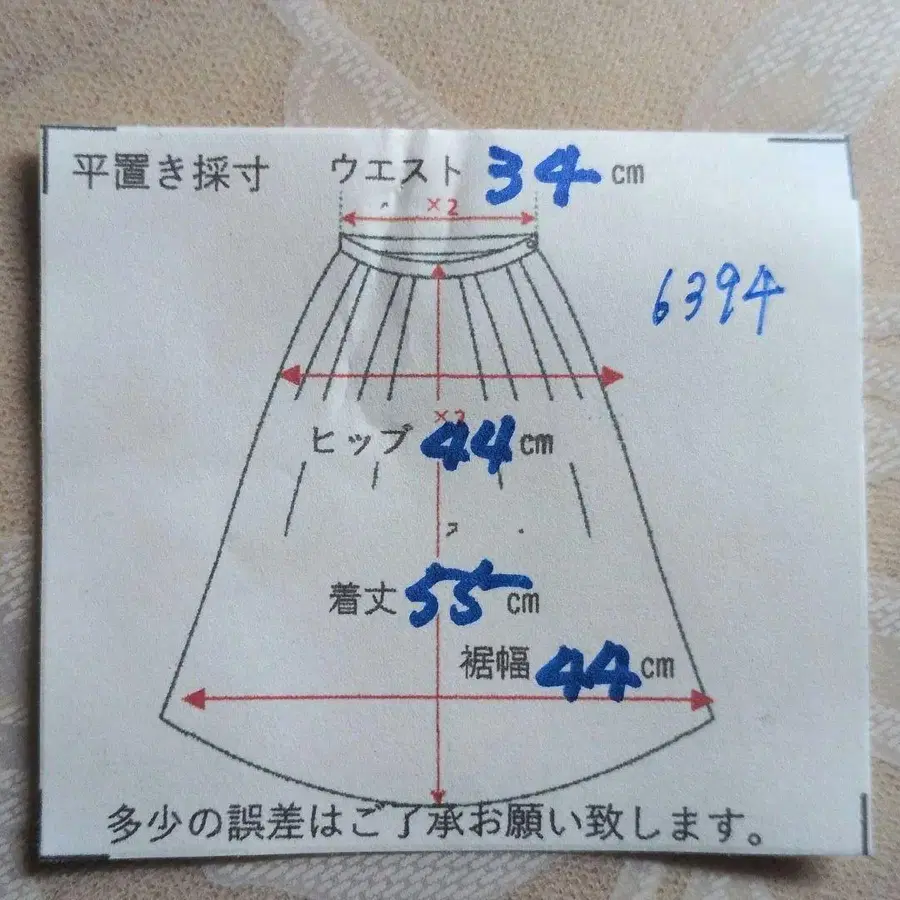 平置き採寸 ウエスト 34 cm
×2
6394
×2
ヒップ 44 cm
着丈 55 cm
裾幅 44 cm
多少の誤差はご了承お願い致します。